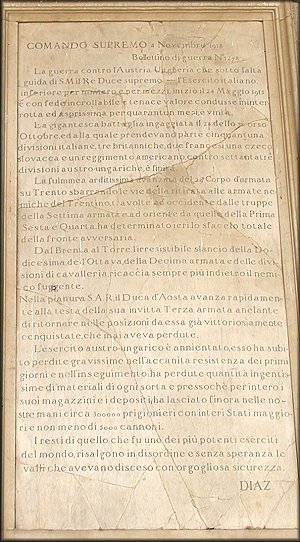 COMANDO SUPREMO 4 Novembre 1918
Bolletino di guerra N.1268
La guerra contro l'Austria Ungheria che sotto l'alta
guida di S.M. il Re Duce supremo l'Esercito italiano,
inferiore per numero e per mezzi, iniziò il 24 Maggio 1915
e con fede incrollabile e tenace valore condusse ininter
rotta ed asprissima per quarantun mesi, è vinta.
La gigantesca battaglia ingaggiata il 24 dello scorso
Ottobre ed alla quale prendevano parte cinquantuna
divisioni italiane, tre britanniche, due francesi una czeco
slovacca e un reggimento americano contro settantatre
divisioni austro-ungariche, è finita.
La fulminea arditissima avanzata del 29 Corpo d'armata
su Trento sbarrando le vie della ritirata alle armate ne
miche del Trentino, travolte ad occidente dalle truppe
della Settima armata e ad oriente da quelle della Prima
Sesta e Quarta, ha determinato ieri lo sfacelo totale
della fronte avversaria.
Dal Brenta al Torre l'irresistibile slancio della Do
dicesima, dell'Ottava, della Decima armata e delle divi
sioni di cavalleria ricaccia sempre più indietro il nemi
co fuggente.
Nella pianura S.A.R. il Duca d'Aosta avanza rapidamen
te alla testa della sua invitta Terza armata anelante
di ritornare nelle posizioni da essa già vittoriosamente
conquistate che mai aveva perdute.
L'esercito austro-ungarico è annientato, esso ha subi
to perdite gravissime nell'accanita resistenza dei primi
giorni e nell'inseguimento, ha perdute quantità ingentis
sime di materiali di ogni sorta e pressochè per intero i
suoi magazzini e i depositi, ha lasciato finora nelle no
stre mani circa 300000 prigionieri con interi Stati maggio
ri e non meno di 5000 cannoni.
I resti di quello che fu uno dei più potenti eserciti
del mondo, risalgono in disordine e senza speranza le
valli che avevano disceso con orgogliosa sicurezza.
DIAZ